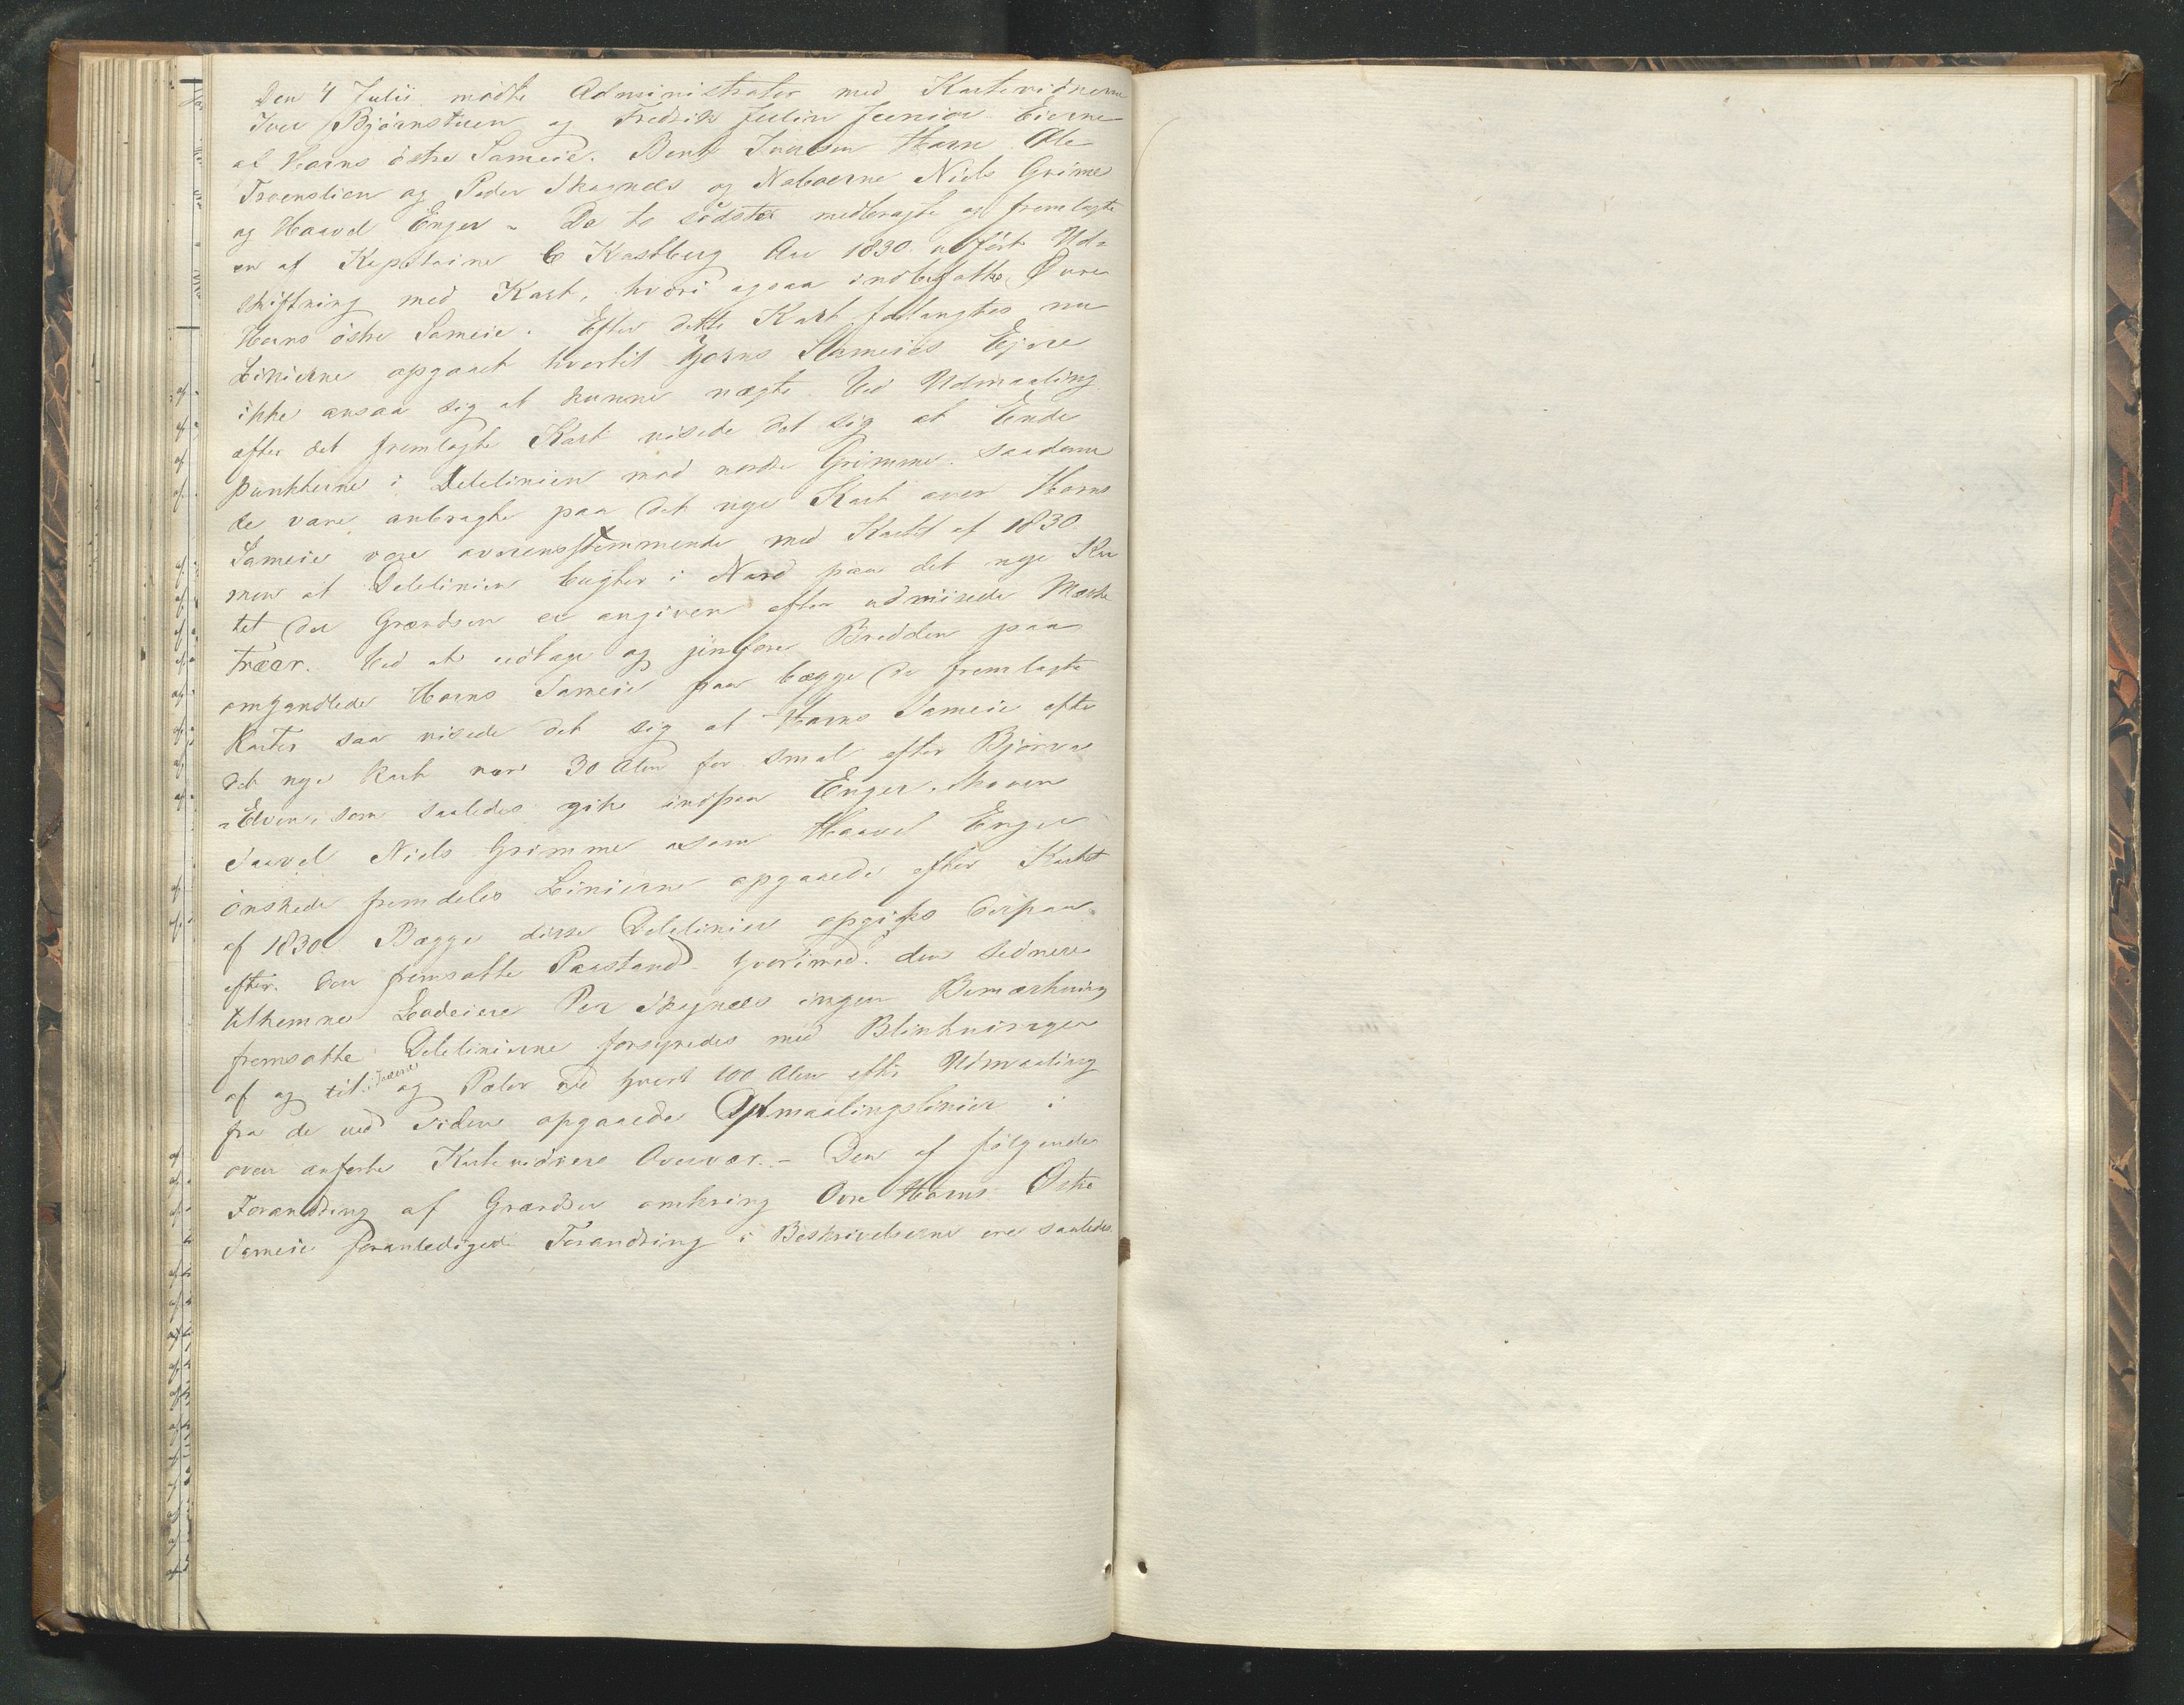 Den 4 Julii mødte Administrator med Kartevidnerne
Iver Bjørnstuen og Fredrik Julin Junior Eierne
af Horns østre Sameie. Bent Iversen Horn Ole
Troenslien og Peder Skognæs og Naboerne Niels Grime
og Haavel Enger - De to sidste medbragte og fremlagte
en af Kaptaine C Kastberg Aar 1830 udført Ud=
skiftning med Kart, hvori ogsaa indbefattes Øvre
Horns østre Sameie. Efter dette Kart forlangtes nu
Linierne opgaaet hvortil Horns Sameies Ejere
ikke ansaa sig at kunne nægte. Ved Udmaaling
efter det fremlagte Kart visede det sig at Ende
punkterne i Delelinien mod nordre Grimme saadanne
de vare anbragte paa det nye Kart over Horns
Sameie vare overensstemmende med Kartet af 1830.
men at Delelinien bugter i Nord paa det nye Kar
tet der Grændsen er angiven efter udviisede Mærke
træer. Ved at udtage og jevnføre Bredden paa
omhandlede Horns Sameie paa begge de fremlagte
Karter saa visede det sig at Horns Sameie efter
det nye Kart var 30 Alen for smal efter Bjørva
-Elven, som saaledes gik indpaa Enger-skoven
Saavel Niels Grimme som Haavel Enger
ønskede fremdeles Linierne opgaaede efter Kartet
af 1830. Begge disse Delelinier opgikes derpaa
efter den fremsatte Paastand hvorimod den sednere
tilkomne Lodeiere Per Skognæs ingen Bemærkning
fremsatte Delelinierne forsynedes med Blinkninger
af og til i Træerne og Pæler ved hvert 100 Alen efter Udmaaling
fra de ved Siden opgaaede Opmaalingslinier i
oven anførte Kartevidners Overvær. - Den af følgende
Forandring af Grændsen omkring Øvre Horns Østre
Sameie foranledigede Forandring i Beskrivelserne ere saaledes.